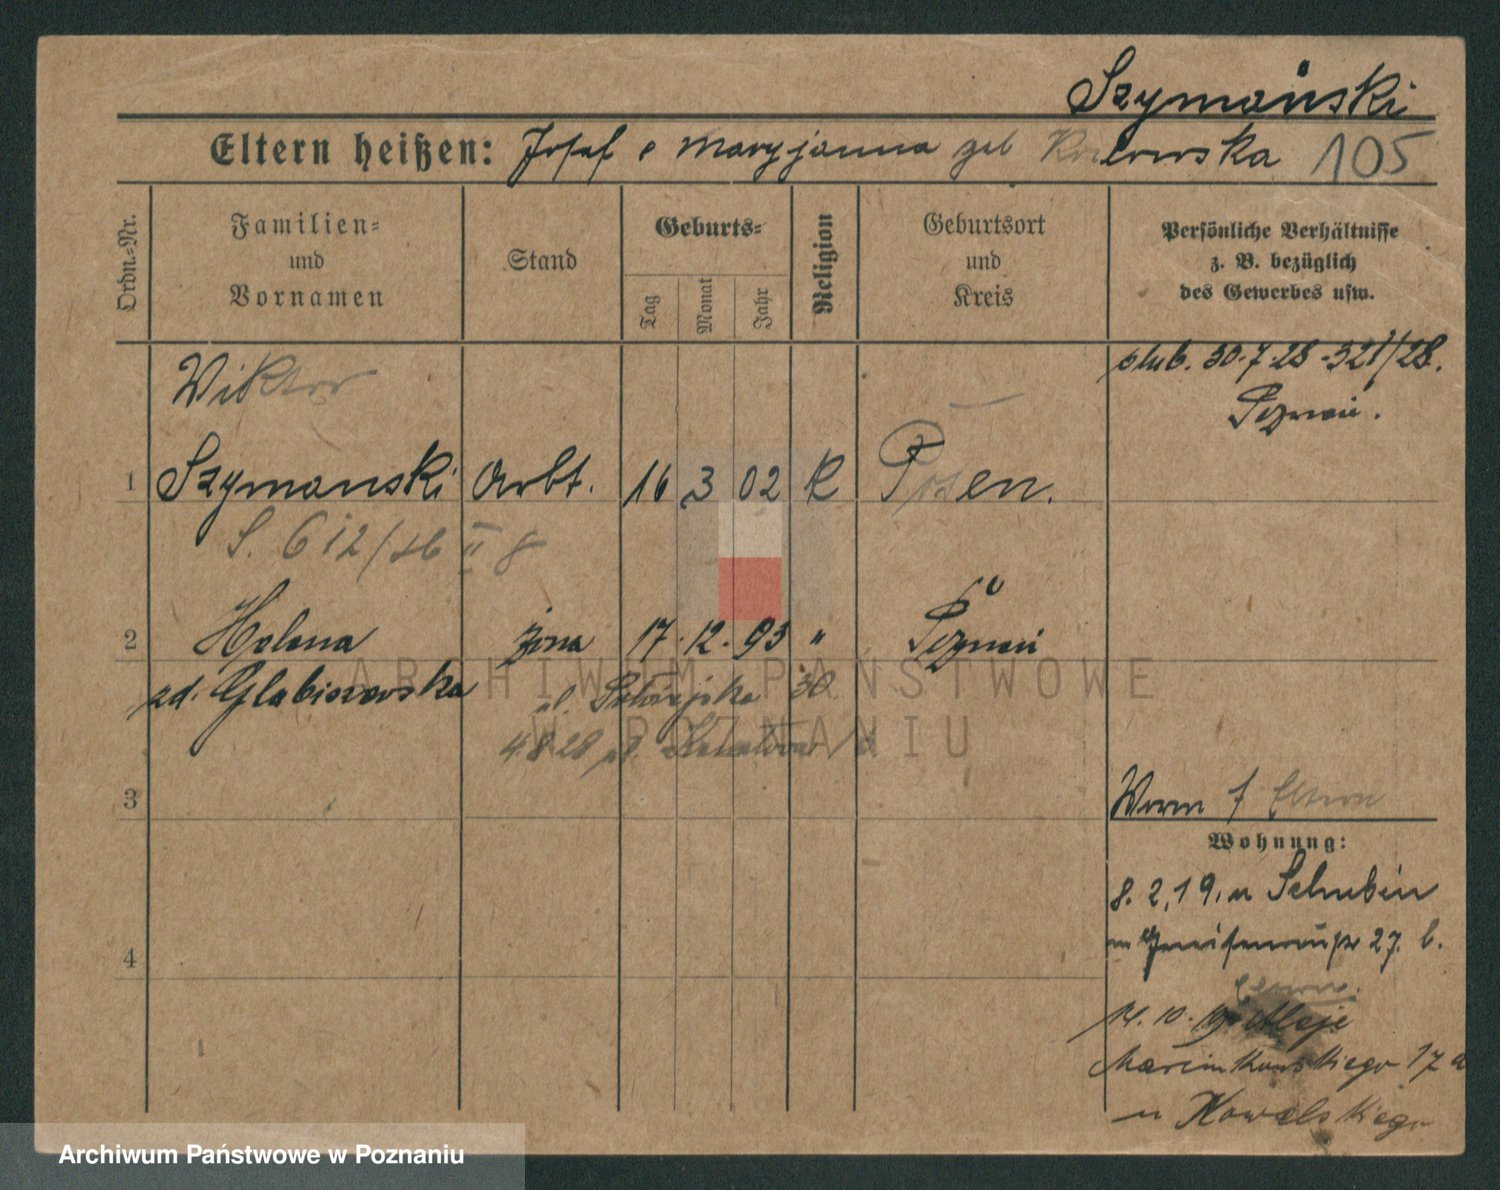 Szymański
Eltern heißen: Josef e Maryjanna geb 105
Ordn.=Nr.
Familien=
und
Vornamen
Stand
Geburts=
Tag
Monat
Jahr
Religion
Geburtsort
und
Kreis
Persönliche Verhältnisse
z. B. bezüglich
des Gewerbes usw.
ślub. 30.7.28 - 321/28.
Poznań.
Wiktor
1 Szymanski Arbt. 16 3 02 K Posen.
S. 612/
2 Helena żona 17. 12. 93 " Poznań
zd. 30
48 28 ul.
3
Worm f Eltern
Wohnung:
8. 2. 19. n Schubin
27. b.
Eltern.
14. 10. 19 Aleje
Marcinkowskiego 17a
u Kowalskiego
4
ARCHIWUM PAŃSTWOWE
W POZNANIU
Archiwum Państwowe w Poznaniu